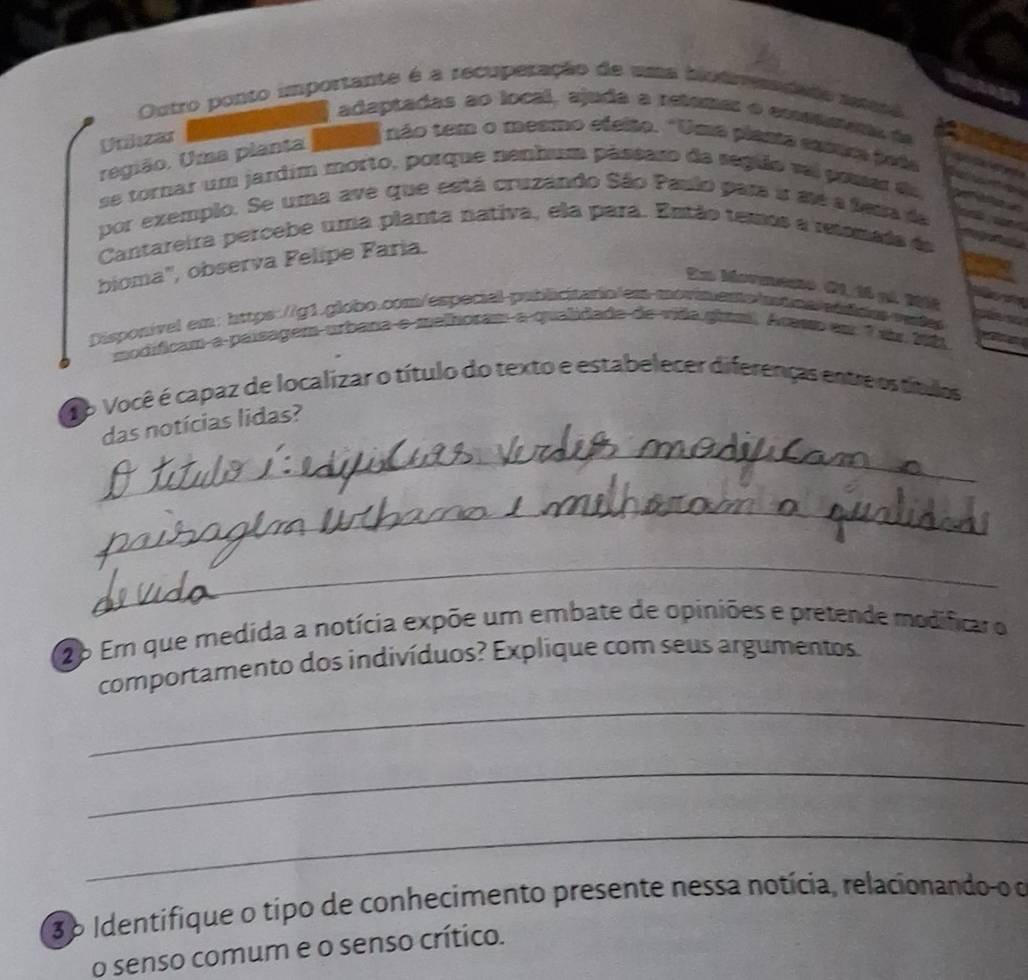 Outro ponto importante é a recuperação de uma
Utilizar adaptadas ao local, ajuda a retomar o
região. Uma planta não tem o mesmo efeito. "Uma planta pode
se tornar um jardim morto, porque nenhum pássaro da região vai pousar
por exemplo. Se uma ave que está cruzando São Paulo para ir até a Serra da
Cantareira percebe uma planta nativa, ela para. Então temos a retomada do
bioma", observa Felipe Faria.
Disponível em: https://g1.globo.com/especial-publicitario/em-movimento/
modificam-a-paisagem-urbana-e-melhoram-a-qualidade-de-vida.ghtml. Acesso em: 7
1 Você é capaz de localizar o título do texto e estabelecer diferenças entre os títulos
das notícias lidas?
O titulo
paisagem urbana e melhoram a qualidade
de vida
2 Em que medida a notícia expõe um embate de opiniões e pretende modificar o
comportamento dos indivíduos? Explique com seus argumentos.
3 Identifique o tipo de conhecimento presente nessa notícia, relacionando-o
o senso comum e o senso crítico.